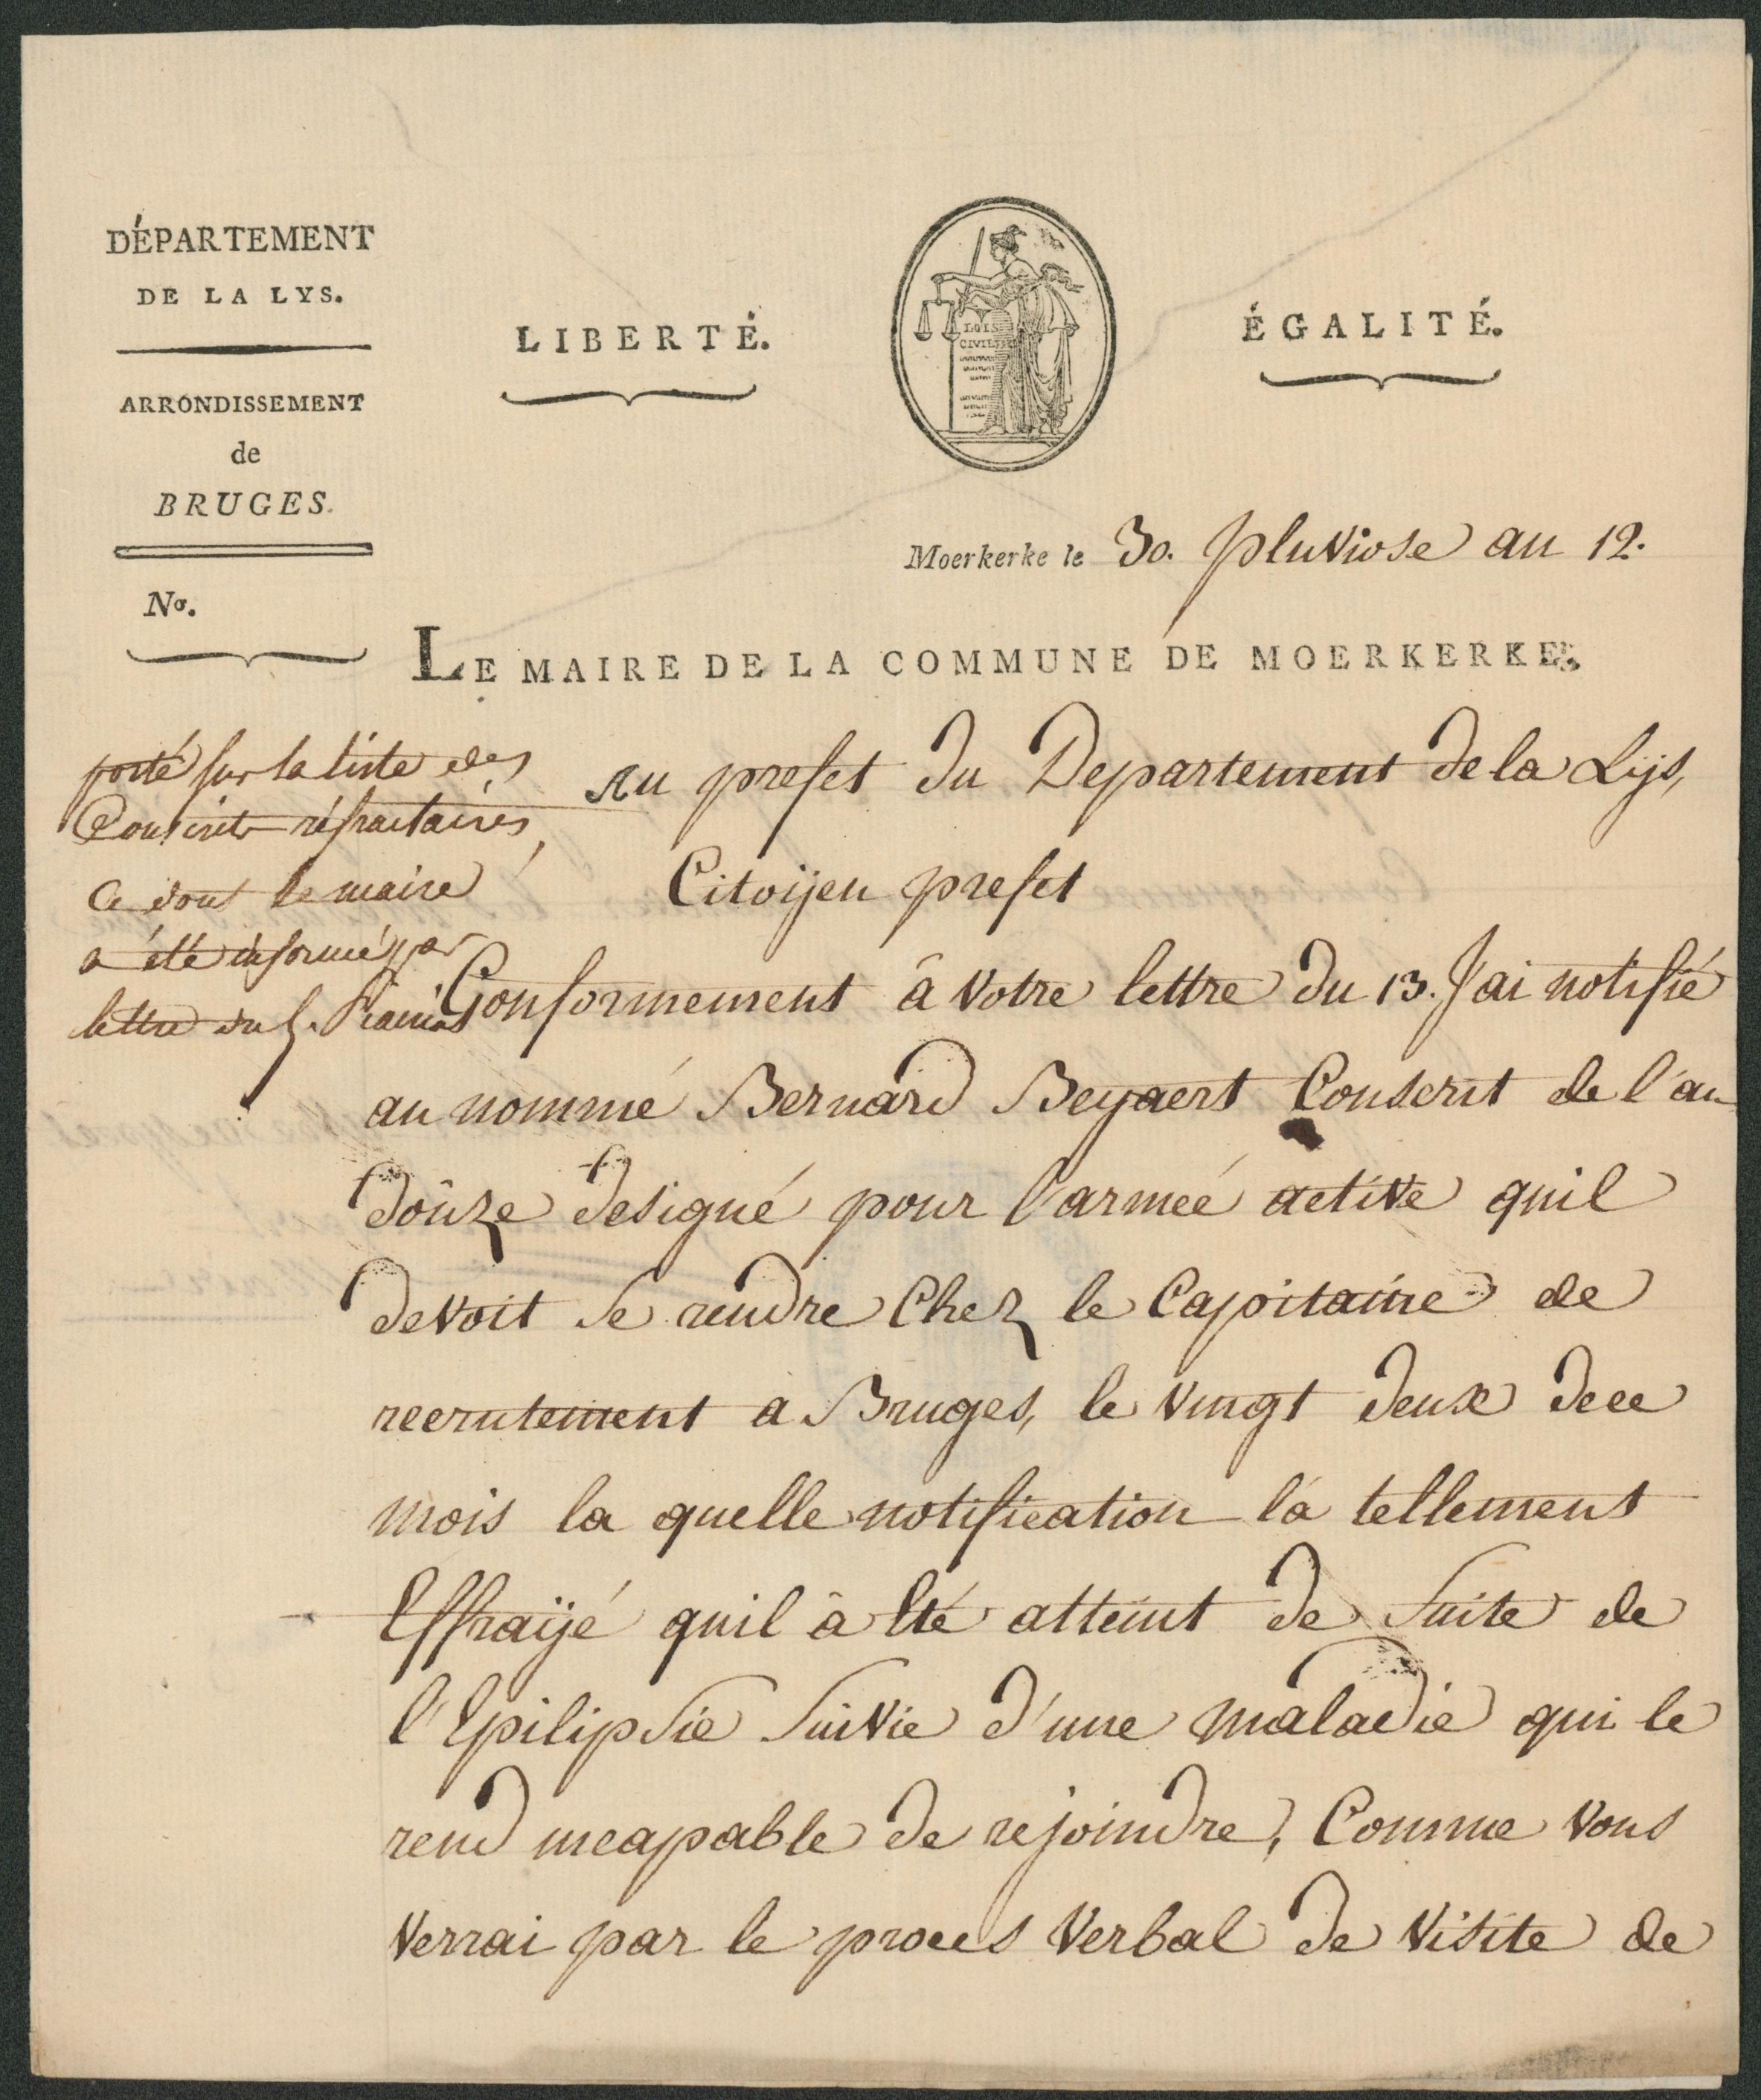 DÉPARTEMENT
DE LA LYS.
ARRONDISSEMENT
de
BRUGES.
No.
LIBERTÉ.
LOIS
CIVILES
ÉGALITÉ.
Moerkerke le 30. pluviose an 12.
LE MAIRE DE LA COMMUNE DE MOERKERKE,
porté sur la liste des
Conscrits réfractaires,
Ce dont le maire
a été informé par
lettre du
Au prefet du Departement de la Lys,
Citoÿen prefet
Conformement â votre lettre du 13. J'ai notifié
au nommé Bernard Beyaert Conscrit de l'an
doûze designé pour l'armeé active quil
devoit se rendre Chez le Capitaine de
recrutement a Bruges, le vingt deux de ce
mois la quelle notification la tellement
Effraÿé quil â Eté atteint de suite de
l'Epilipsie suivie d'une maladie qui le
rend incapable de rejoindre, Comme vous
verrai par le proces verbal de visite de